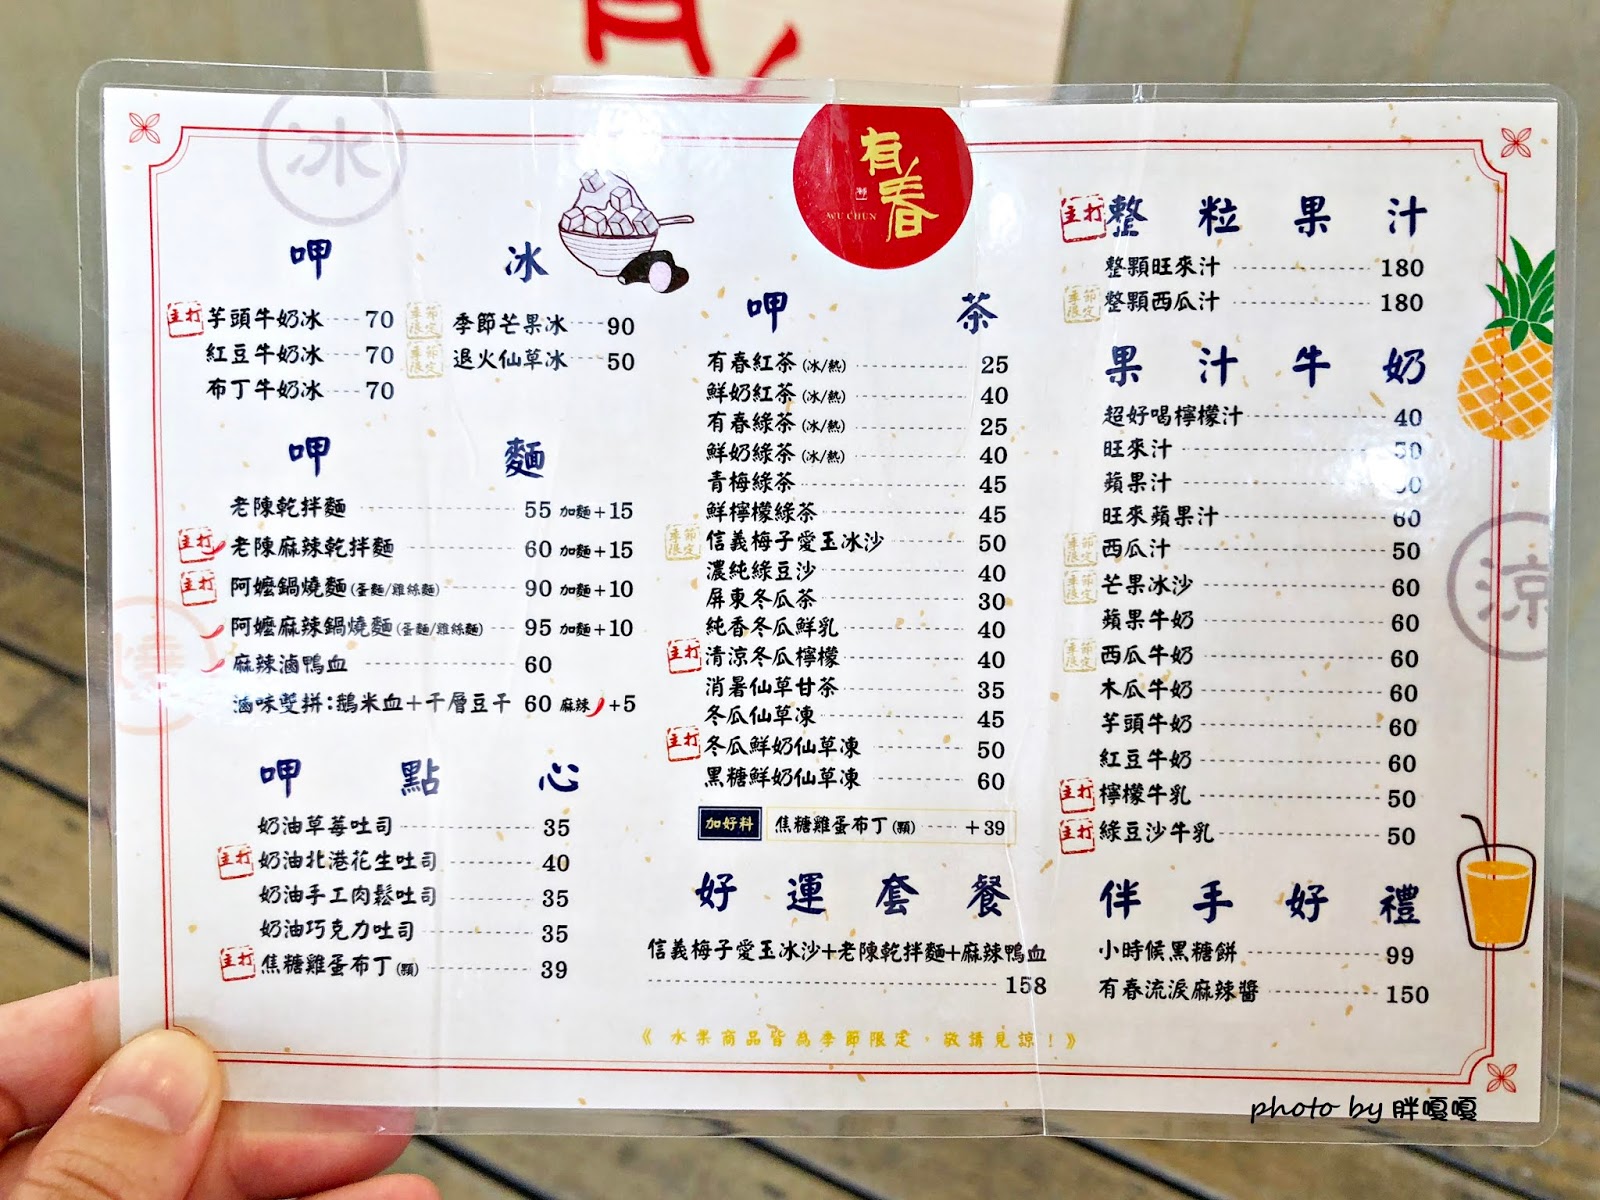 冰
有春
WU CHUN
呷 冰
主打 芋頭牛奶冰 70
紅豆牛奶冰 70
布丁牛奶冰 70
季節限定 季節芒果冰 90
季節限定 退火仙草冰 50
呷 麵
老陳乾拌麵 55 加麵+15
主打 老陳麻辣乾拌麵 60 加麵+15
主打 阿嬤鍋燒麵(蛋麵/雞絲麵) 90 加麵+10
阿嬤麻辣鍋燒麵(蛋麵/雞絲麵) 95 加麵+10
麻辣滷鴨血 60
滷味雙拼:鵝米血+千層豆干 60 麻辣+5
燒
呷 點 心
奶油草莓吐司 35
主打 奶油北港花生吐司 40
奶油手工肉鬆吐司 35
奶油巧克力吐司 35
主打 焦糖雞蛋布丁(顆) 39
呷 茶
有春紅茶(冰/熱) 25
鮮奶紅茶(冰/熱) 40
有春綠茶(冰/熱) 25
鮮奶綠茶(冰/熱) 40
青梅綠茶 45
鮮檸檬綠茶 45
季節限定 信義梅子愛玉冰沙 50
濃純綠豆沙 40
屏東冬瓜茶 30
純香冬瓜鮮乳 40
主打 清涼冬瓜檸檬 40
消暑仙草甘茶 35
冬瓜仙草凍 45
主打 冬瓜鮮奶仙草凍 50
黑糖鮮奶仙草凍 60
加好料 焦糖雞蛋布丁(顆) +39
好 運 套 餐
信義梅子愛玉冰沙+老陳乾拌麵+麻辣鴨血
158
主打 整 粒 果 汁
整顆旺來汁 180
季節限定 整顆西瓜汁 180
果 汁 牛 奶
超好喝檸檬汁 40
旺來汁 50
蘋果汁
旺來蘋果汁 60
季節限定 西瓜汁 50
季節限定 芒果冰沙 60
蘋果牛奶 60
季節限定 西瓜牛奶 60
木瓜牛奶 60
芋頭牛奶 60
紅豆牛奶 60
主打 檸檬牛乳 50
主打 綠豆沙牛乳 50
涼
伴 手 好 禮
小時候黑糖餅 99
有春流淚麻辣醬 150
《 水果商品皆為季節限定,敬請見諒!》
photo by 胖嘎嘎